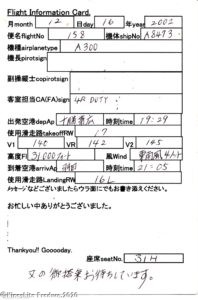 Flight Information Card.
月month 12 日day 16 年year 2002
便名flightNo 158 機体shipNo A8473
機種airplanetype A300
機長pirotsign
副操縦士copirotsign
客室担当CA(FA)sign 4R DUTY
出発空港depAp 十勝帯広 時刻time 19:29
使用滑走路takeoffRW 17
V1 140 VR 142 V2 145
高度Fl 31,000フィート 風Wind
到着空港arrivAp 羽田 時刻time 21:05
使用滑走路LandingRW 16L
メッセージなどございましたらウラ面にでもお書き添えください。
お忙しい中ありがとうございました。
Thankyou!! Gooooday.
座席seatNo. 31H
又の御搭乗お待ちしています。